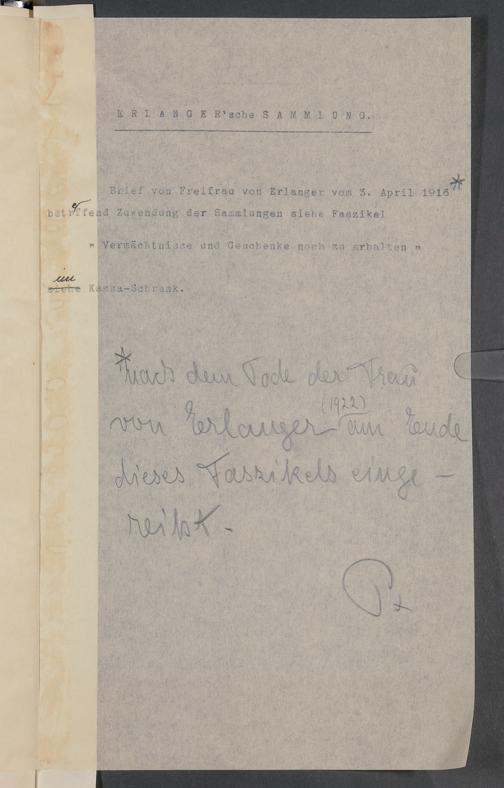 ERLANGER'sche SAMMLUNG.
Brief von Freifrau von Erlanger vom 3. April 1916 *
betreffend Zuwendung der Sammlungen siehe Faszikel
" Vermächtnisse und Geschenke noch zu erhalten "
im
siehe Kassa-Schrank.
* nach dem Tode der Frau
von Erlanger (1922) am Ende
dieses Faszikels einge-
reiht.